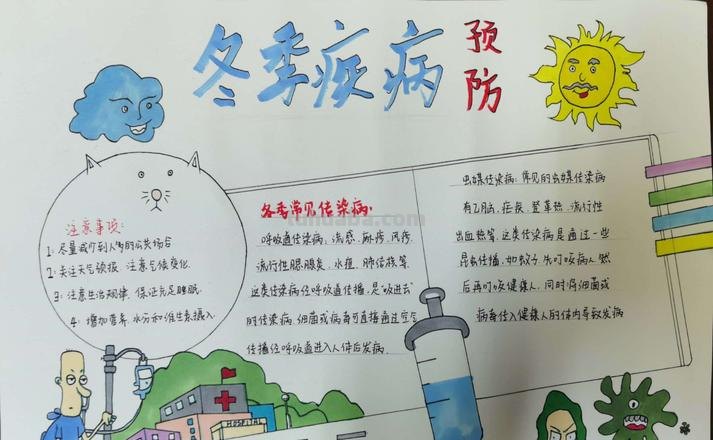 冬季疾病
预防
注意事项:
1. 尽量减少到人多的公共场合
2. 关注天气预报,注意气候变化.
3. 注意生活规律,保证充足睡眠.
4. 增加营养.水分和维生素摄入.
冬季常见传染病:
呼吸道传染病:流感.麻疹.风疹.
流行性腮腺炎.水痘.肺结核等.
这类传染病经呼吸道传播.是"吸进去"
的传染病.细菌或病毒可直接通过空气
传播经呼吸道进入人体后发病.
虫媒传染病:常见的虫媒传染病
有乙脑.疟疾.登革热.流行性
出血热等.这类传染病是通过一些
昆虫传播.如蚊子.先叮咬病人.然
后再叮咬健康人.同时将细菌或
病毒传入健康人的体内导致发病
tuhuaba.com
HOSPITAL